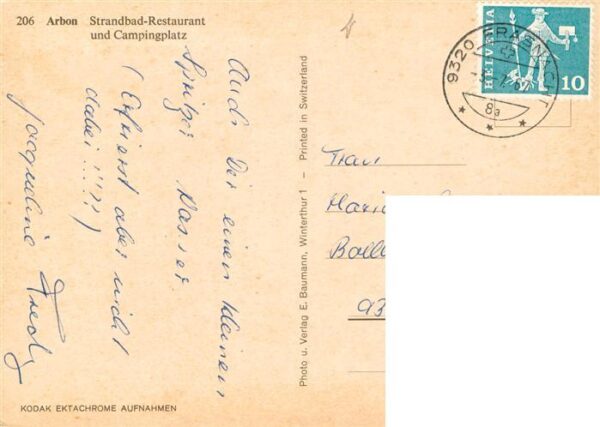 206 Arbon Strandbad-Restaurant
und Campingplatz
Auch Dir einen kleinen
Spritzer Wasser
(Erfrierst aber nicht
dabei !!??)
Jacqueline Fredy
KODAK EKTACHROME AUFNAHMEN
Photo u. Verlag E. Baumann, Winterthur 1 – Printed in Switzerland
HELVETIA
10
9320 FRASNACHT
8a
Frau
93